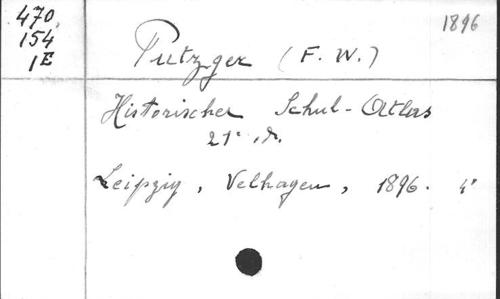 470.
154
1E
1896
Putzger (F. W.)
Historischer Schul-Atlas
21e
Leipzig, Velhagen, 1896. 4°